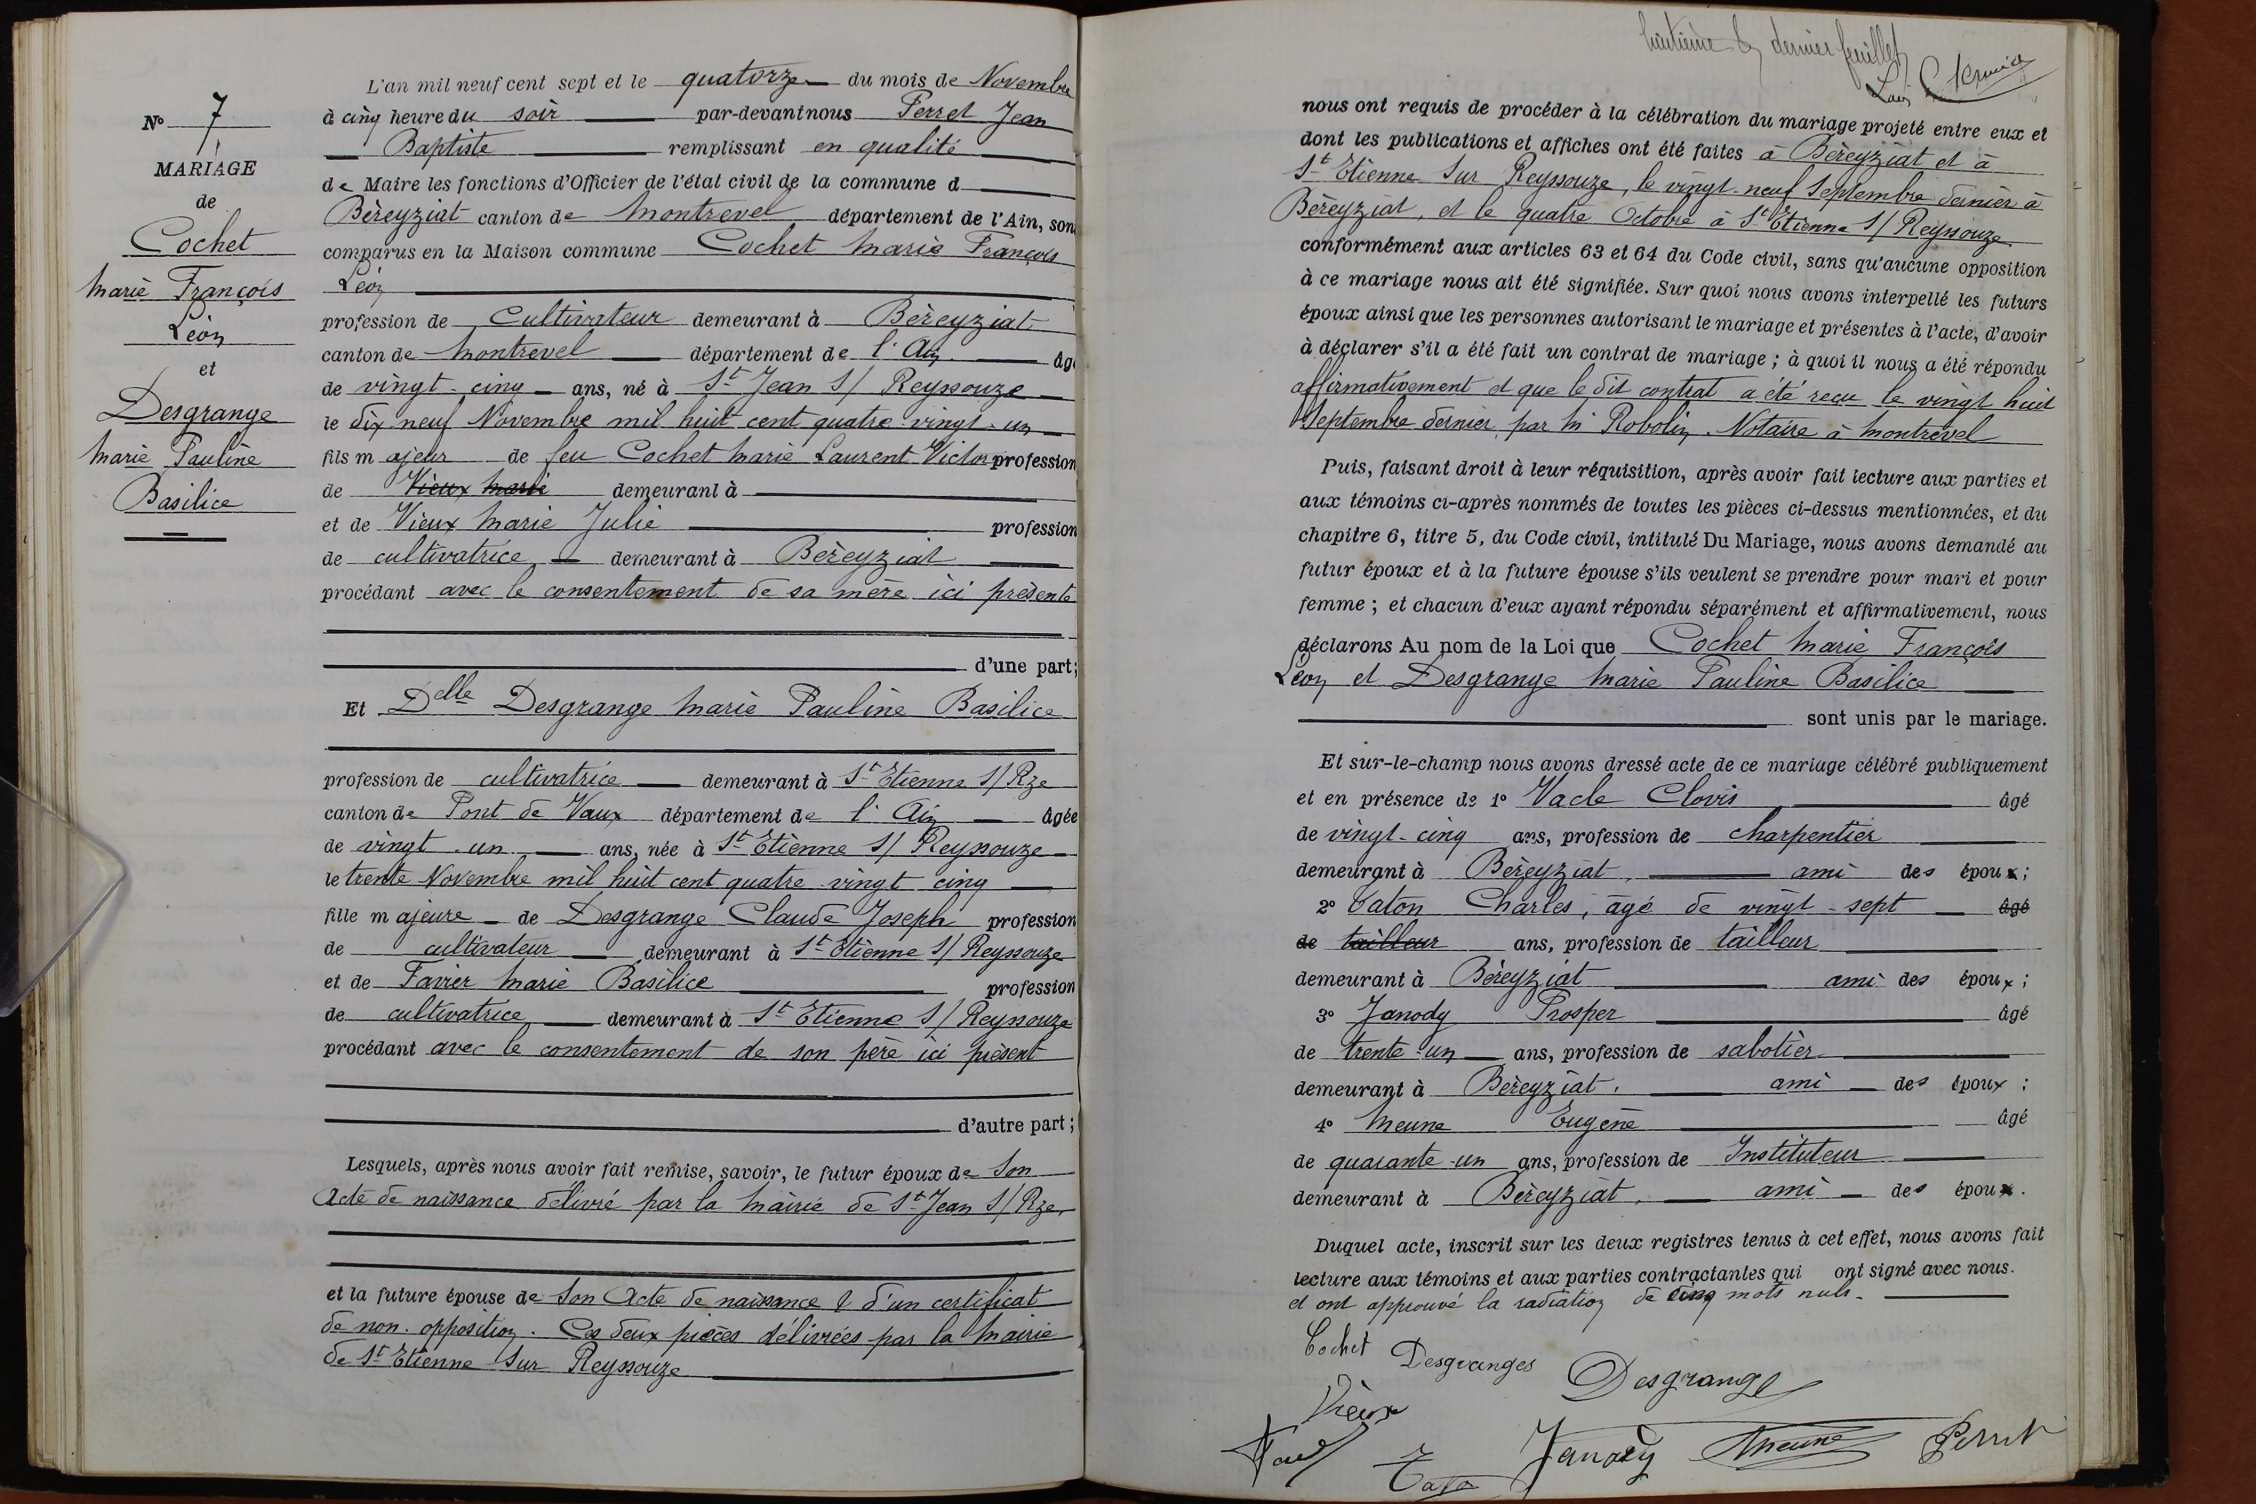 N° 7
MARIAGE
de
Cochet
Marie François
Léon
et
Desgrange
Marie Pauline
Basilice
L'an mil neuf cent sept et le quatorze du mois de Novembre
à cinq heure du soir par-devant nous Perret Jean
Baptiste remplissant en qualité
de Maire les fonctions d'Officier de l'état civil de la commune d
Béreyziat canton de Montrevel département de l'Ain, son
comparus en la Maison commune Cochet Marie François
Léon
profession de Cultivateur demeurant à Béreyziat
canton de Montrevel département de l'Ain âgé
de vingt-cinq ans, né à St Jean S/ Reyssouze
le dix neuf Novembre mil huit cent quatre vingt-un
fils majeur de feu Cochet Marie Laurent Victor profession
de Vieux Marie demeurant à
et de Vieux Marie Julie profession
de cultivatrice demeurant à Béreyziat
procédant avec le consentement de sa mère ici présente
d'une part;
Et Delle Desgrange Marie Pauline Basilice
profession de cultivatrice demeurant à St Etienne S/ Rze
canton de Pont de Vaux département de l'Ain âgée
de vingt-un ans, née à St Etienne S/ Reyssouze
le trente Novembre mil huit cent quatre vingt cinq
fille majeure de Desgrange Claude Joseph profession
de cultivateur demeurant à St Etienne S/ Reyssouze
et de Favier Marie Basilice profession
de cultivatrice demeurant à St Etienne S/ Reyssouze
procédant avec le consentement de son père ici présent
d'autre part;
Lesquels, après nous avoir fait remise, savoir, le futur époux de Son
Acte de naissance délivré par la Mairie de St Jean S/ Rze,
et la future épouse de Son Acte de naissance & d'un certificat
de non-opposition. Ces deux pièces délivrées par la Mairie
de St Etienne Sur Reyssouze
huitième & dernier feuillet
nous ont requis de procéder à la célébration du mariage projeté entre eux et
dont les publications et affiches ont été faites à Béreyziat et à
St Etienne Sur Reyssouze, le vingt-neuf Septembre dernier à
Béreyziat, et le quatre Octobre à St Etienne S/ Reyssouze
conformément aux articles 63 et 64 du Code civil, sans qu'aucune opposition
à ce mariage nous ait été signifiée. Sur quoi nous avons interpellé les futurs
époux ainsi que les personnes autorisant le mariage et présentes à l'acte, d'avoir
à déclarer s'il a été fait un contrat de mariage ; à quoi il nous a été répondu
affirmativement et que le dit contrat a été reçu le vingt huit
Septembre dernier, par M Robolin, Notaire à Montrevel
Puis, faisant droit à leur réquisition, après avoir fait lecture aux parties et
aux témoins ci-après nommés de toutes les pièces ci-dessus mentionnées, et du
chapitre 6, titre 5, du Code civil, intitulé Du Mariage, nous avons demandé au
futur époux et à la future épouse s'ils veulent se prendre pour mari et pour
femme ; et chacun d'eux ayant répondu séparément et affirmativement, nous
déclarons Au nom de la Loi que Cochet Marie François
Léon et Desgrange Marie Pauline Basilice
sont unis par le mariage.
Et sur-le-champ nous avons dressé acte de ce mariage célébré publiquement
et en présence de 1° Vacle Clovis âgé
de vingt-cinq ans, profession de charpentier
demeurant à Béreyziat, ami des époux ;
2° Caton Charles, âgé de vingt-sept âgé
de tailleur ans, profession de tailleur
demeurant à Béreyziat ami des époux ;
3° Janody Prosper âgé
de trente-un ans, profession de sabotier
demeurant à Béreyziat. ami des époux ;
4° Meune Eugène âgé
de quarante-un ans, profession de Instituteur
demeurant à Béreyziat, ami des époux.
Duquel acte, inscrit sur les deux registres tenus à cet effet, nous avons fait
lecture aux témoins et aux parties contractantes qui ont signé avec nous.
et ont approuvé la radiation de cinq mots nuls.
Cochet Desgranges Desgrange
Vieux
Janody Meune Perret